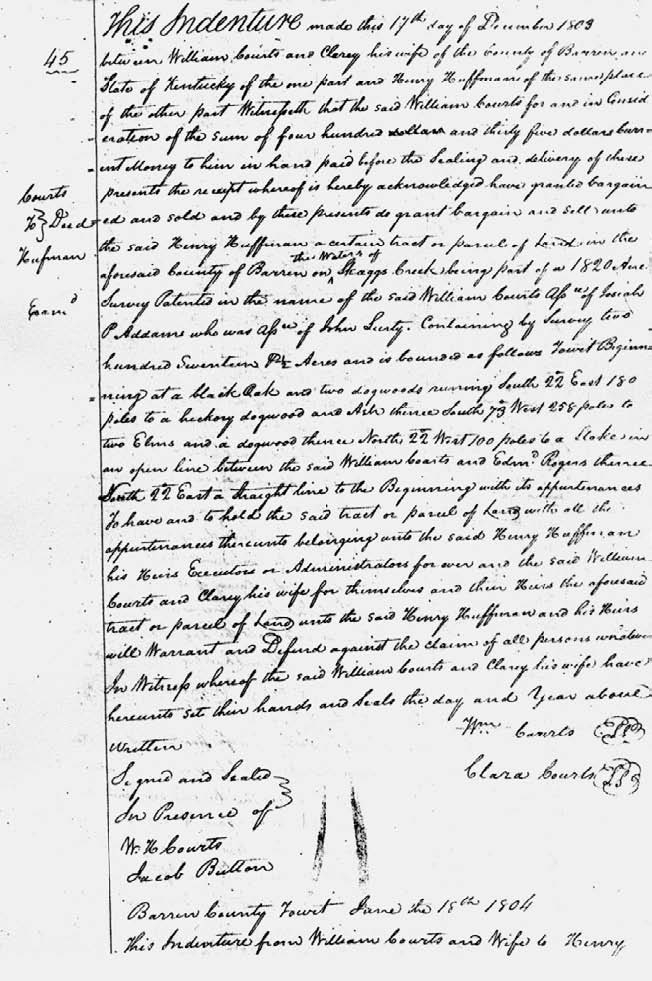 This Indenture made this 17th day of December 1803
45
between William Courts and Clarey his wife of the County of Barren and
State of Kentucky of the one part and Henry Huffman of the same place
of the other part Witnesseth that the said William Courts for and in Consid
-eration of the sum of four hundred dollars and thirty five dollars Curr
-ent Money to him in hand paid before the Sealing and delivery of these
presents the receipt whereof is hereby acknowledged have granted bargain
Courts
To } Deed
Hufman
Examd
-ed and sold and by these presents do grant bargain and sell unto
the said Henry Huffman a certain tract or parcel of Land in the
the Waters of
aforesaid County of Barren on Skaggs Creek being part of a 1820 Acre
Survey Patented in the name of the said William Courts Asse of Josiah
P Addams who was Asse of John Lusty. Containing by Survey two
hundred Seventeen Acres and is bounded as follows Towit Beginn
-ning at a black Oak and two dogwoods running South 22 East 180
poles to a heckory dogwood and Ash thence South 73 West 258 poles to
two Elms and a dogwood thence North 22 West 100 poles to a Stake in
an open line between the said William Courts and Edmd Rogers thence
South 22 East a Straight line to the Beginning with its appurtenances
To have and to hold the said tract or parcel of Land with all the
appurtenances thereunto belonging unto the said Henry Huffman
his Heirs Executors or Administrators for ever and the said William
Courts and Clarey his wife for themselves and their Heirs the aforesaid
tract or parcel of Land unto the said Henry Huffman and his Heirs
will Warrant and Defend against the claim of all persons
In Witness whereof the said William Courts and Clarey his wife have
hereunto set their hands and Seals the day and Year above
written
Wm Courts
Signed and Sealed }
Clara Courts
In Presence of
W. H Courts
Jacob Button
Barren County Towit June the 18th 1804
This Indenture from William Courts and Wife to Henry